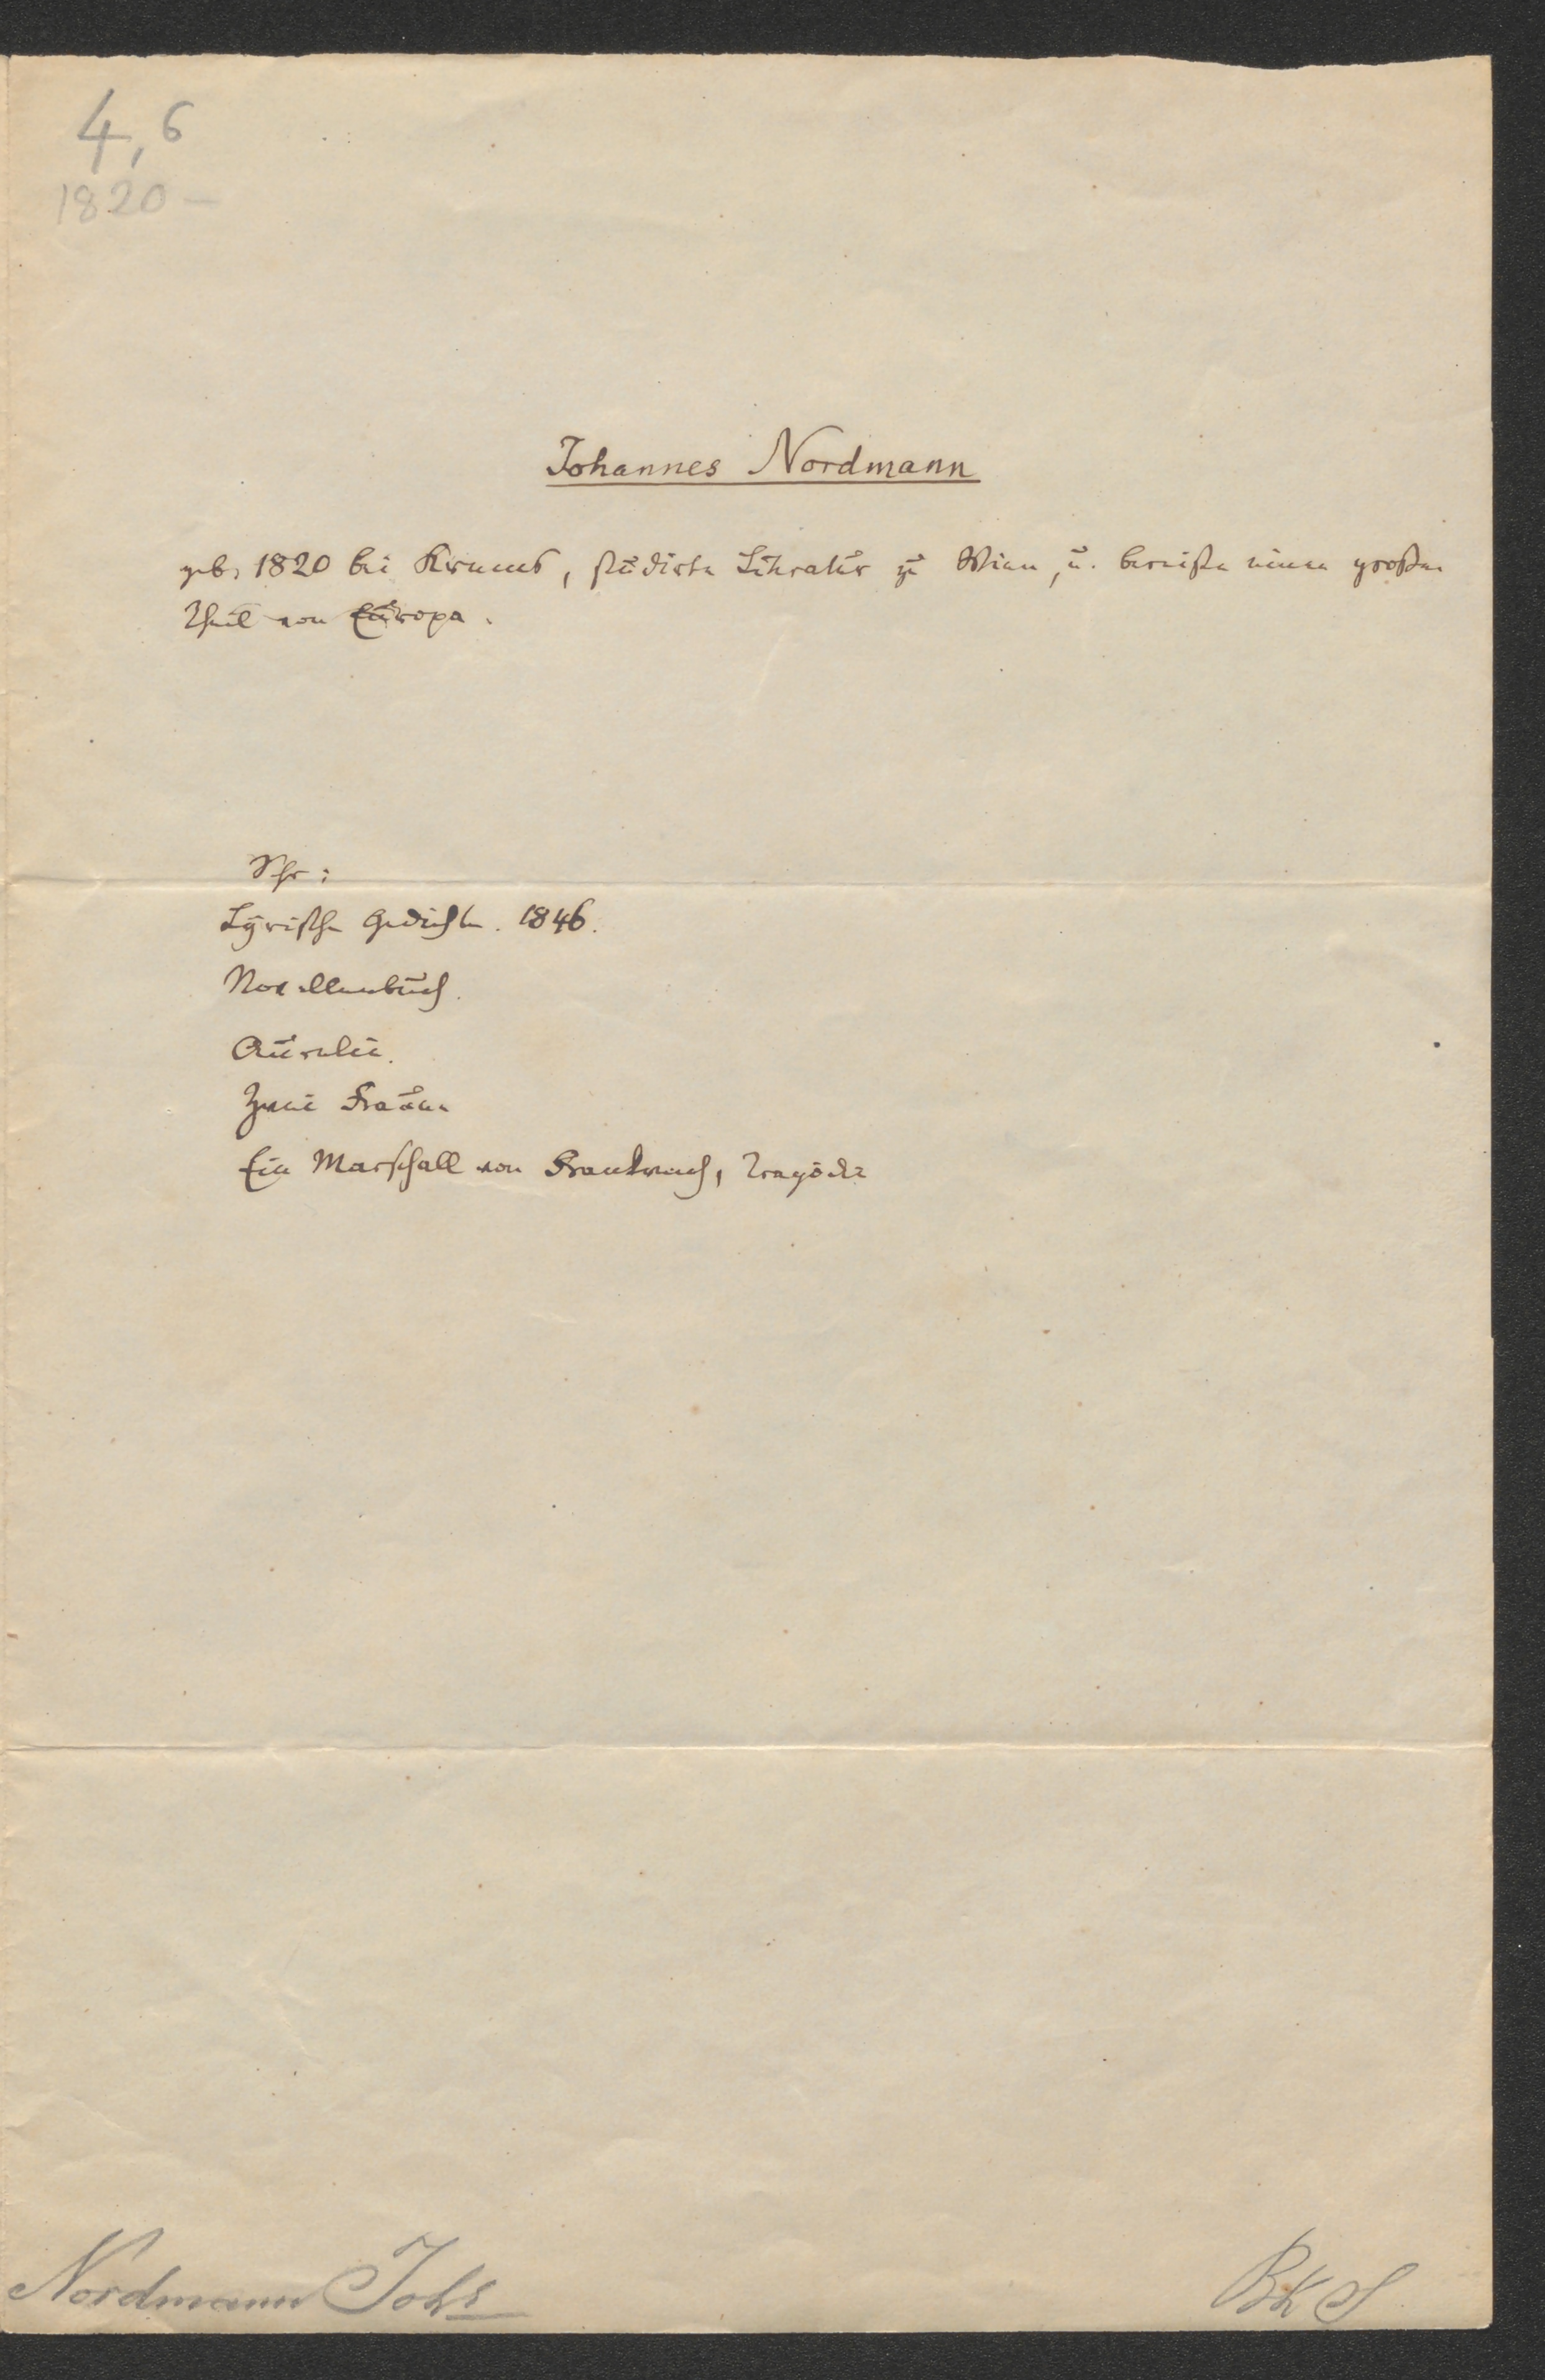 4, 6
1820 –
Johannes Nordmann
geb. 1820 bei Krems, studirte Literatur zu Wien, u. bereiste einen großen
Theil von Europa.
Schr:
Lyrische Gedichte. 1846.
Novellenbuch.
Aurelie.
Zwei Frauen
Ein Marschall von Frankreich, Tragödie
Nordmann Johs
BKS